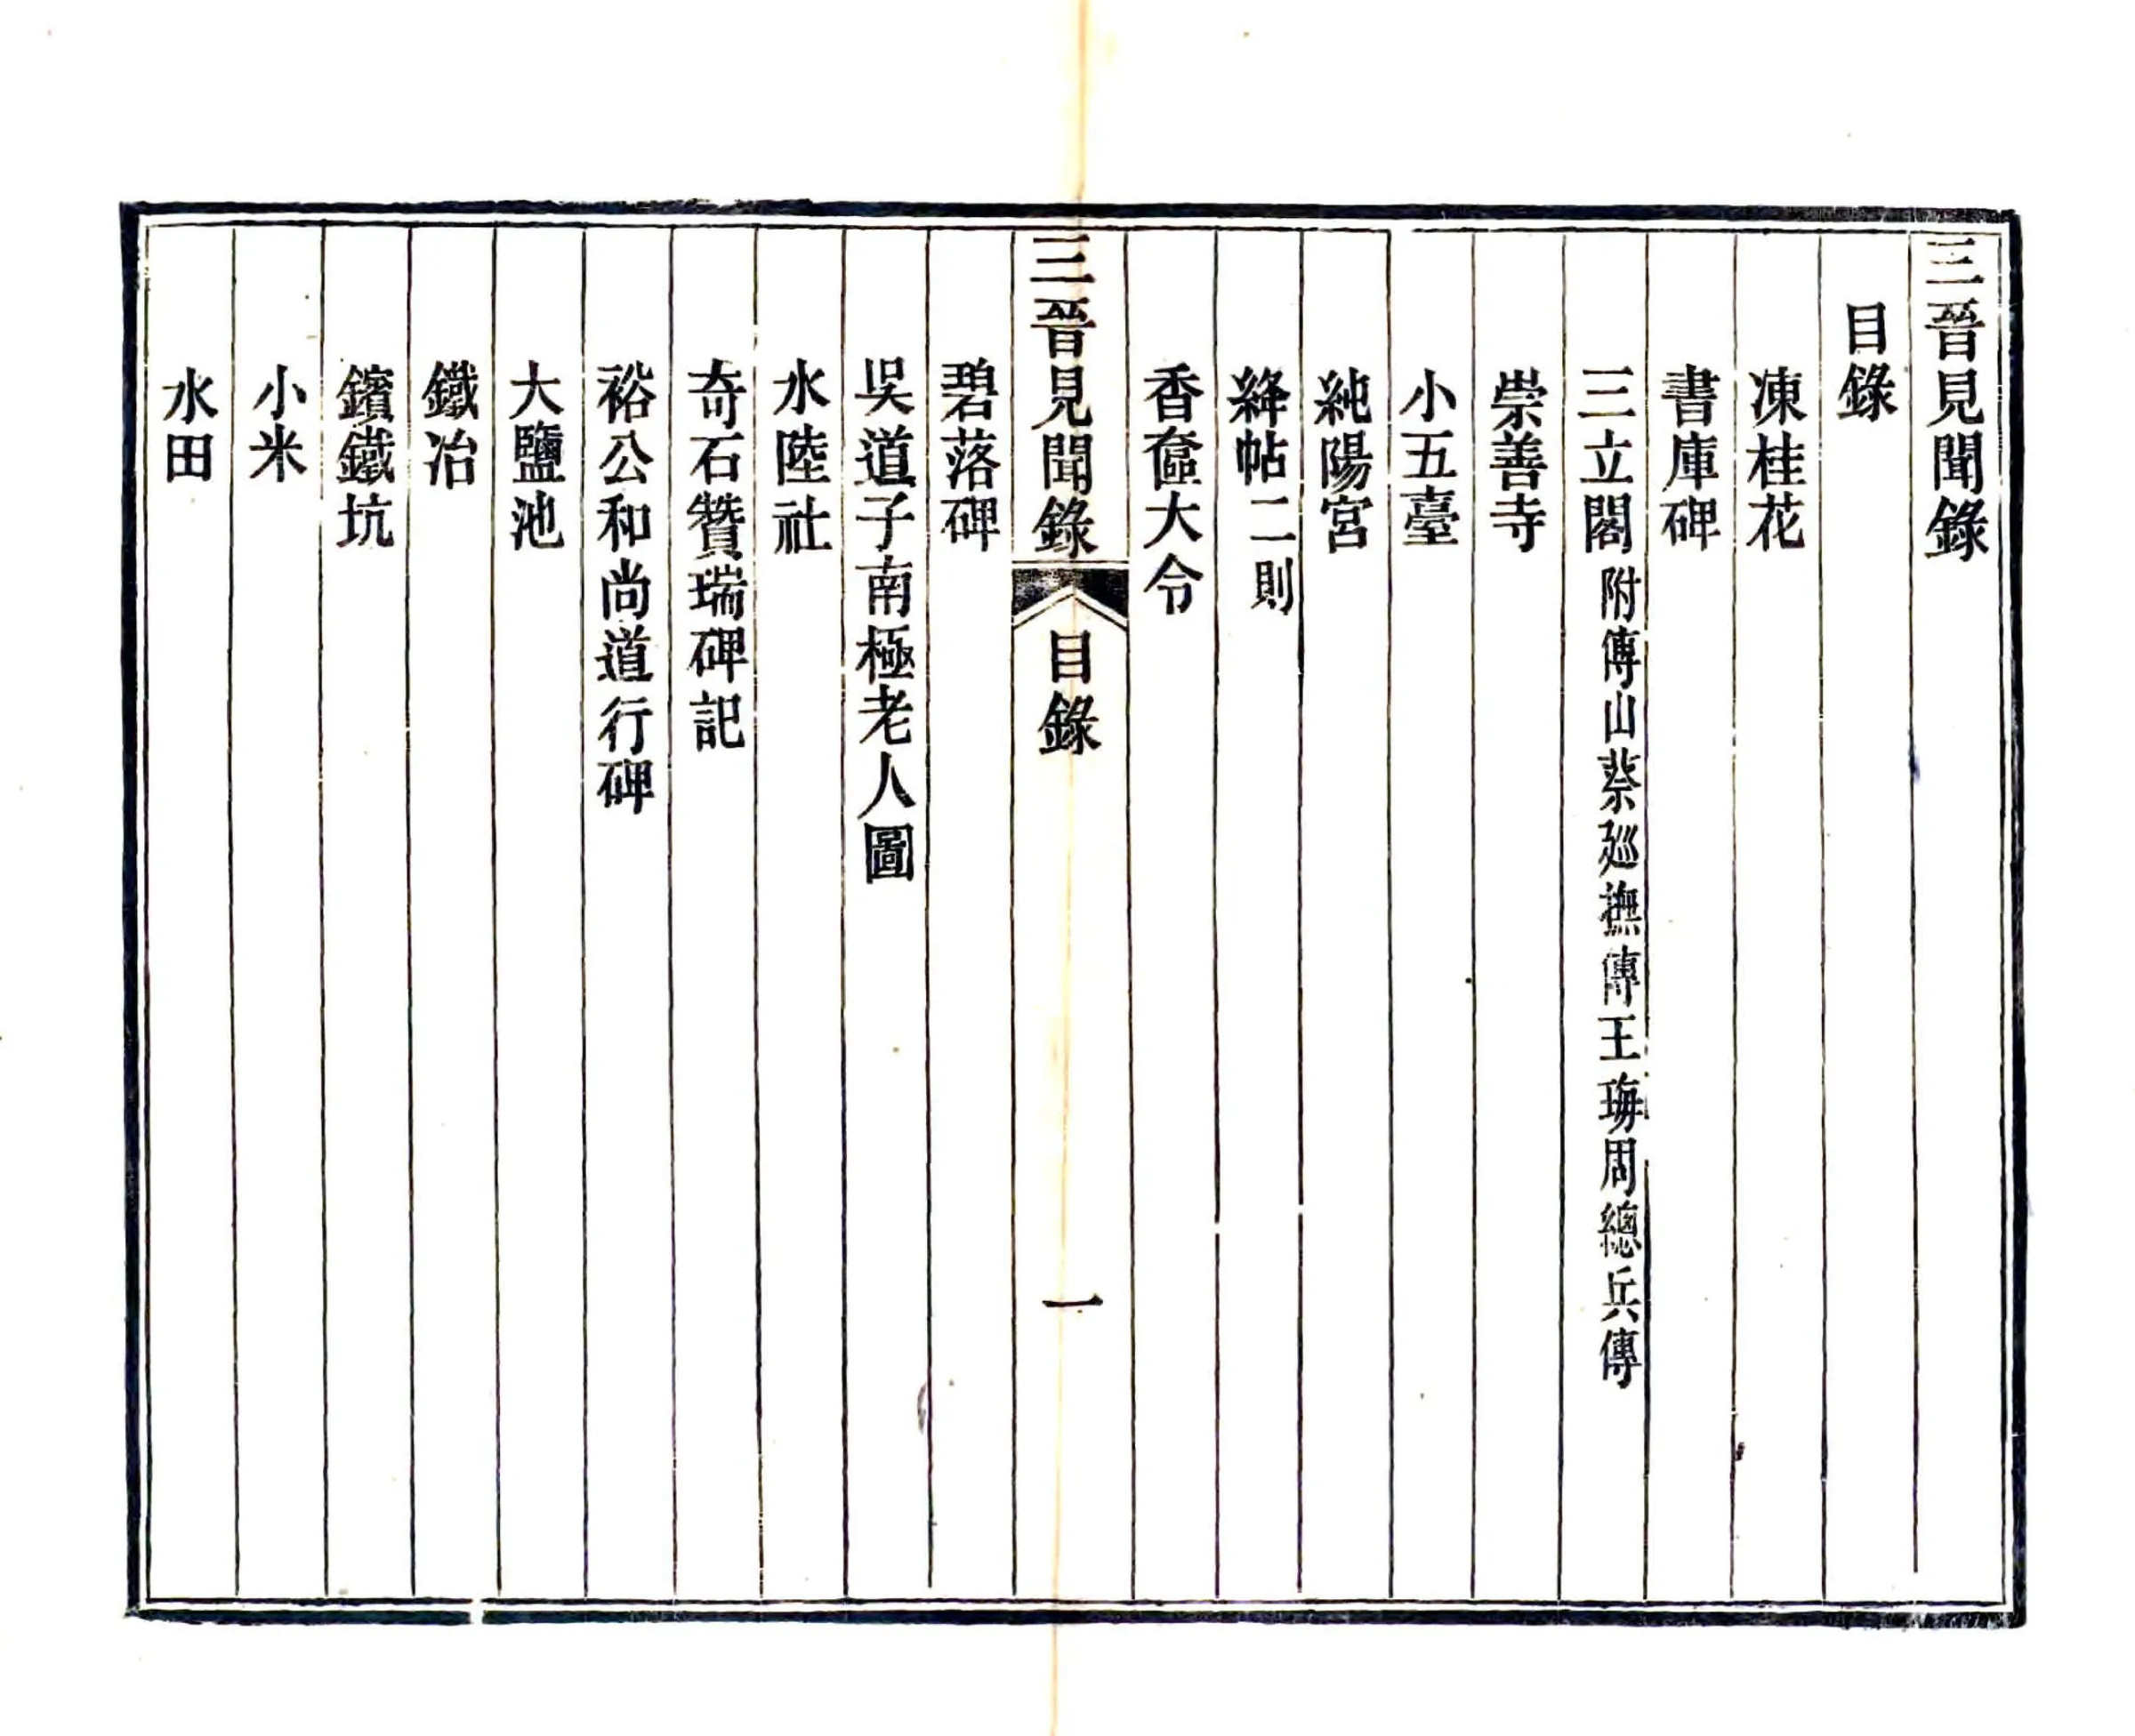 三晉見聞錄
目錄
凍桂花
書庫碑
三立閣附傅山蔡廵撫傳王周總兵傳
崇善寺
小五臺
純陽宮
絳帖二則
香奩大令
三晉見聞錄 目錄 一
碧落碑
吳道子南極老人圖
水陸社
奇石贊瑞碑記
裕公和尚道行碑
大鹽池
鐵冶
鑌鐵坑
小米
水田